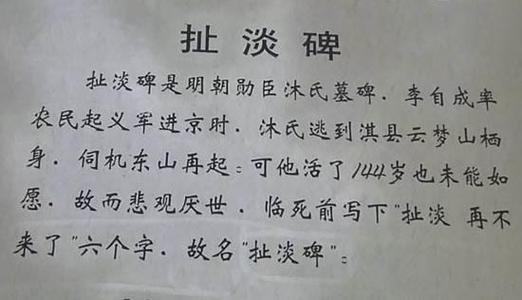 扯淡碑
扯淡碑是明朝勋臣沐氏墓碑．李自成率
农民起义军进京时．沐氏逃到淇县云梦山栖
身．伺机东山再起；可他活了144岁也未能如
愿．故而悲观厌世．临死前写下"扯淡 再不
来了"六个字．故名"扯淡碑"；